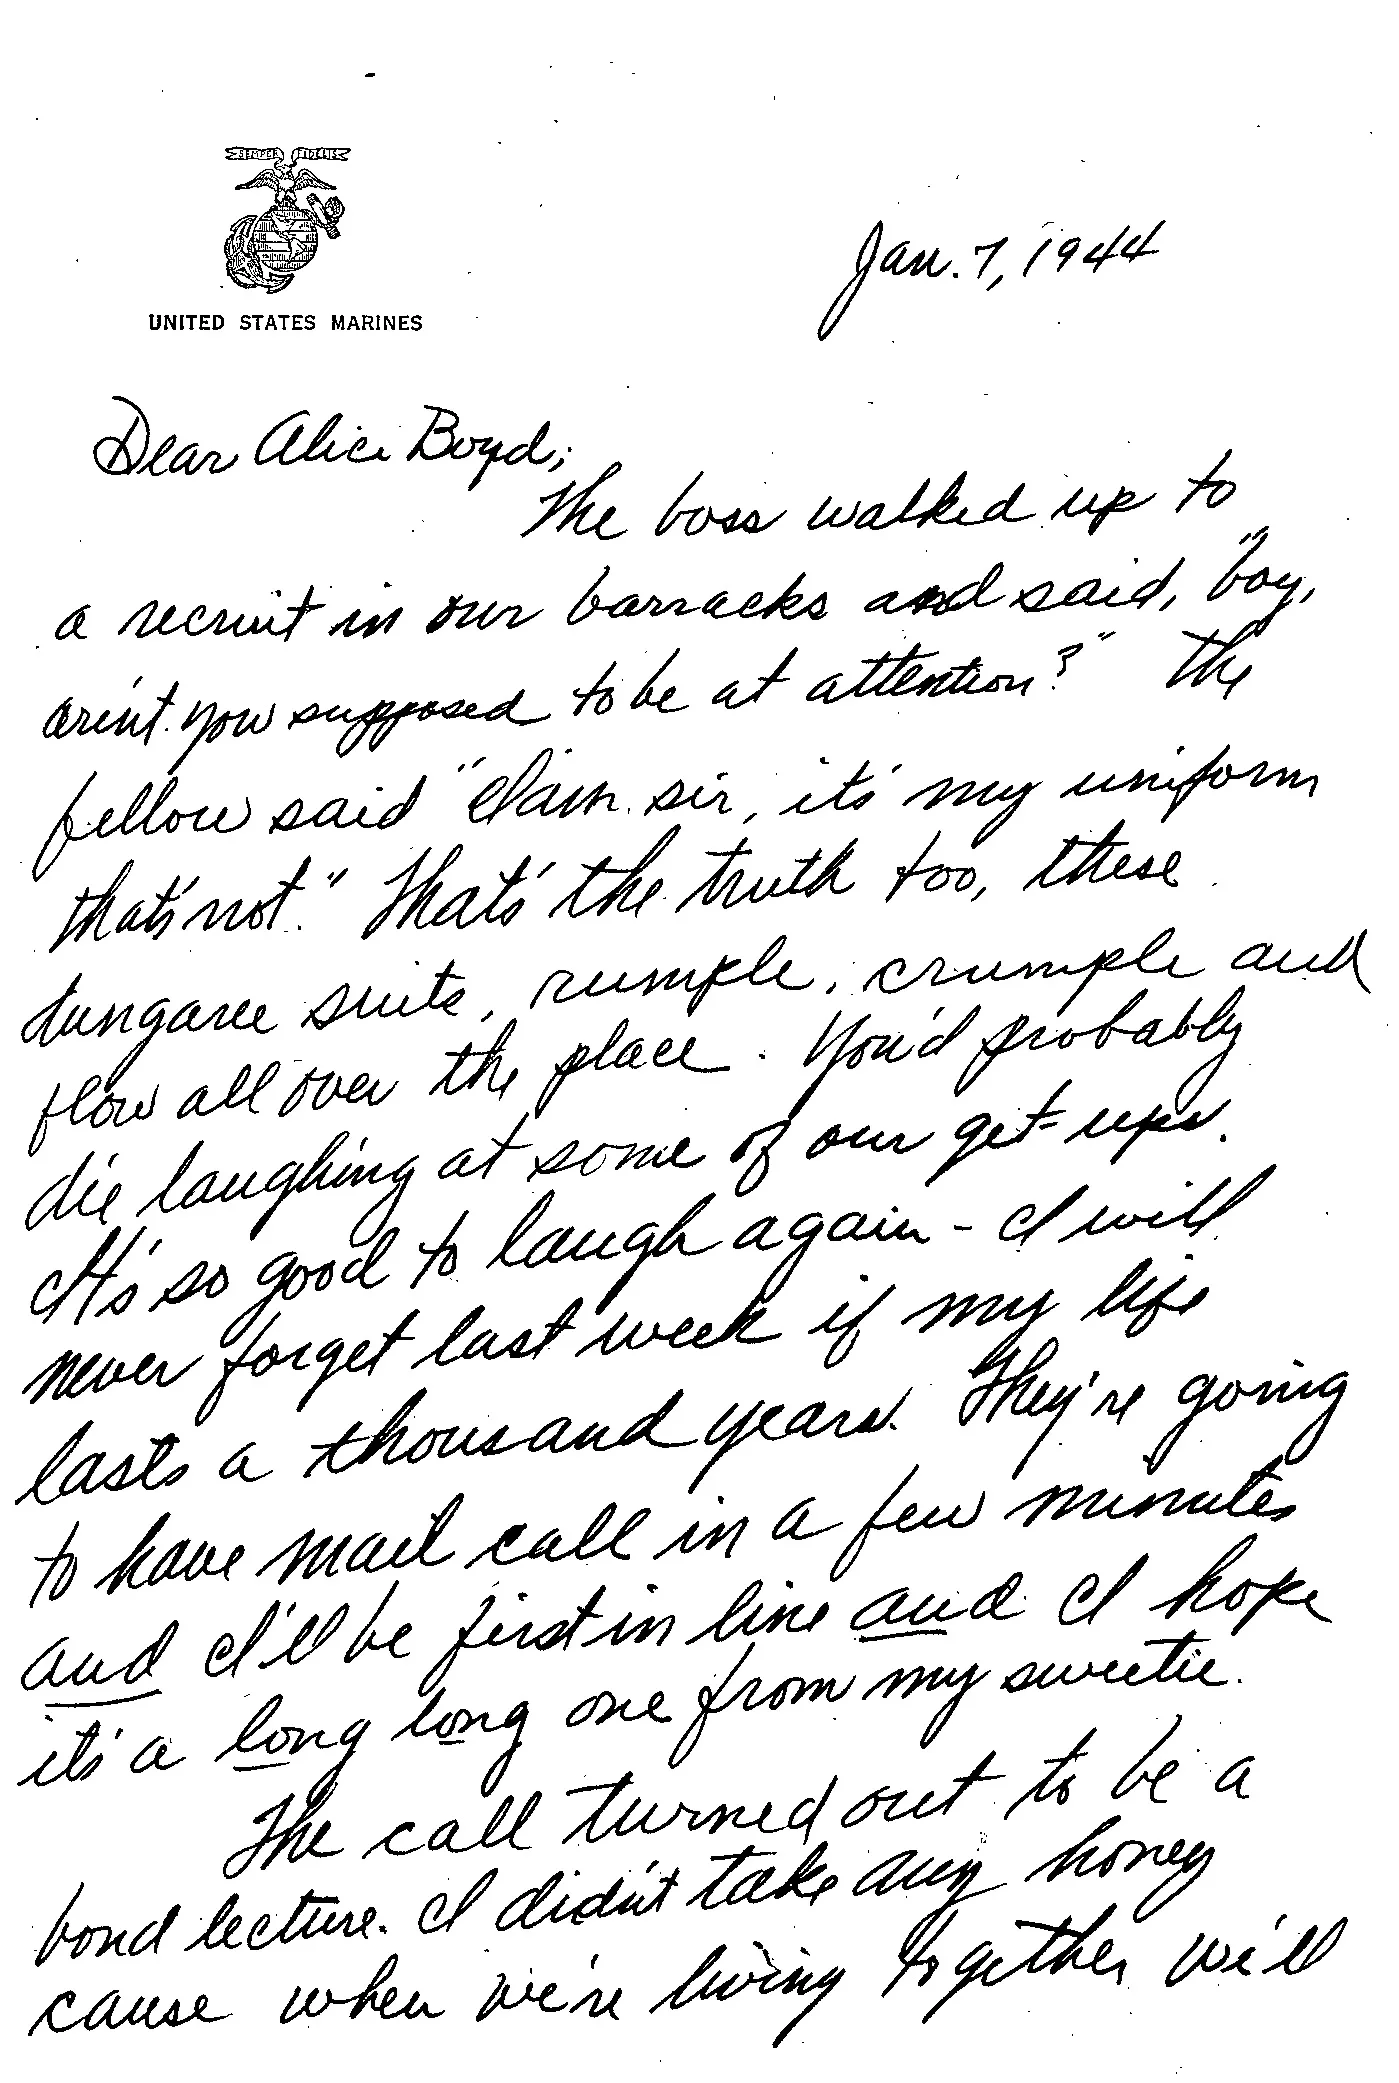 SEMPER FIDELIS
UNITED STATES MARINES
Jan. 7, 1944
Dear Alice Boyd;
The boss walked up to
a recruit in our barracks and said, "boy,
aren't you supposed to be at attention?" The
fellow said "I am sir, it's my uniform
that's not." That's the truth too, these
dungaree suits, rumple, crumple and
flow all over the place. You'd probably
die laughing at some of our get-ups.
It's so good to laugh again - I will
never forget last week if my life
lasts a thousand years. They're going
to have mail call in a few minutes
and I'll be first in line and I hope
it's a long long one from my sweetie.
The call turned out to be a
bond lecture. I didn't take any honey
cause when we're living together we'll